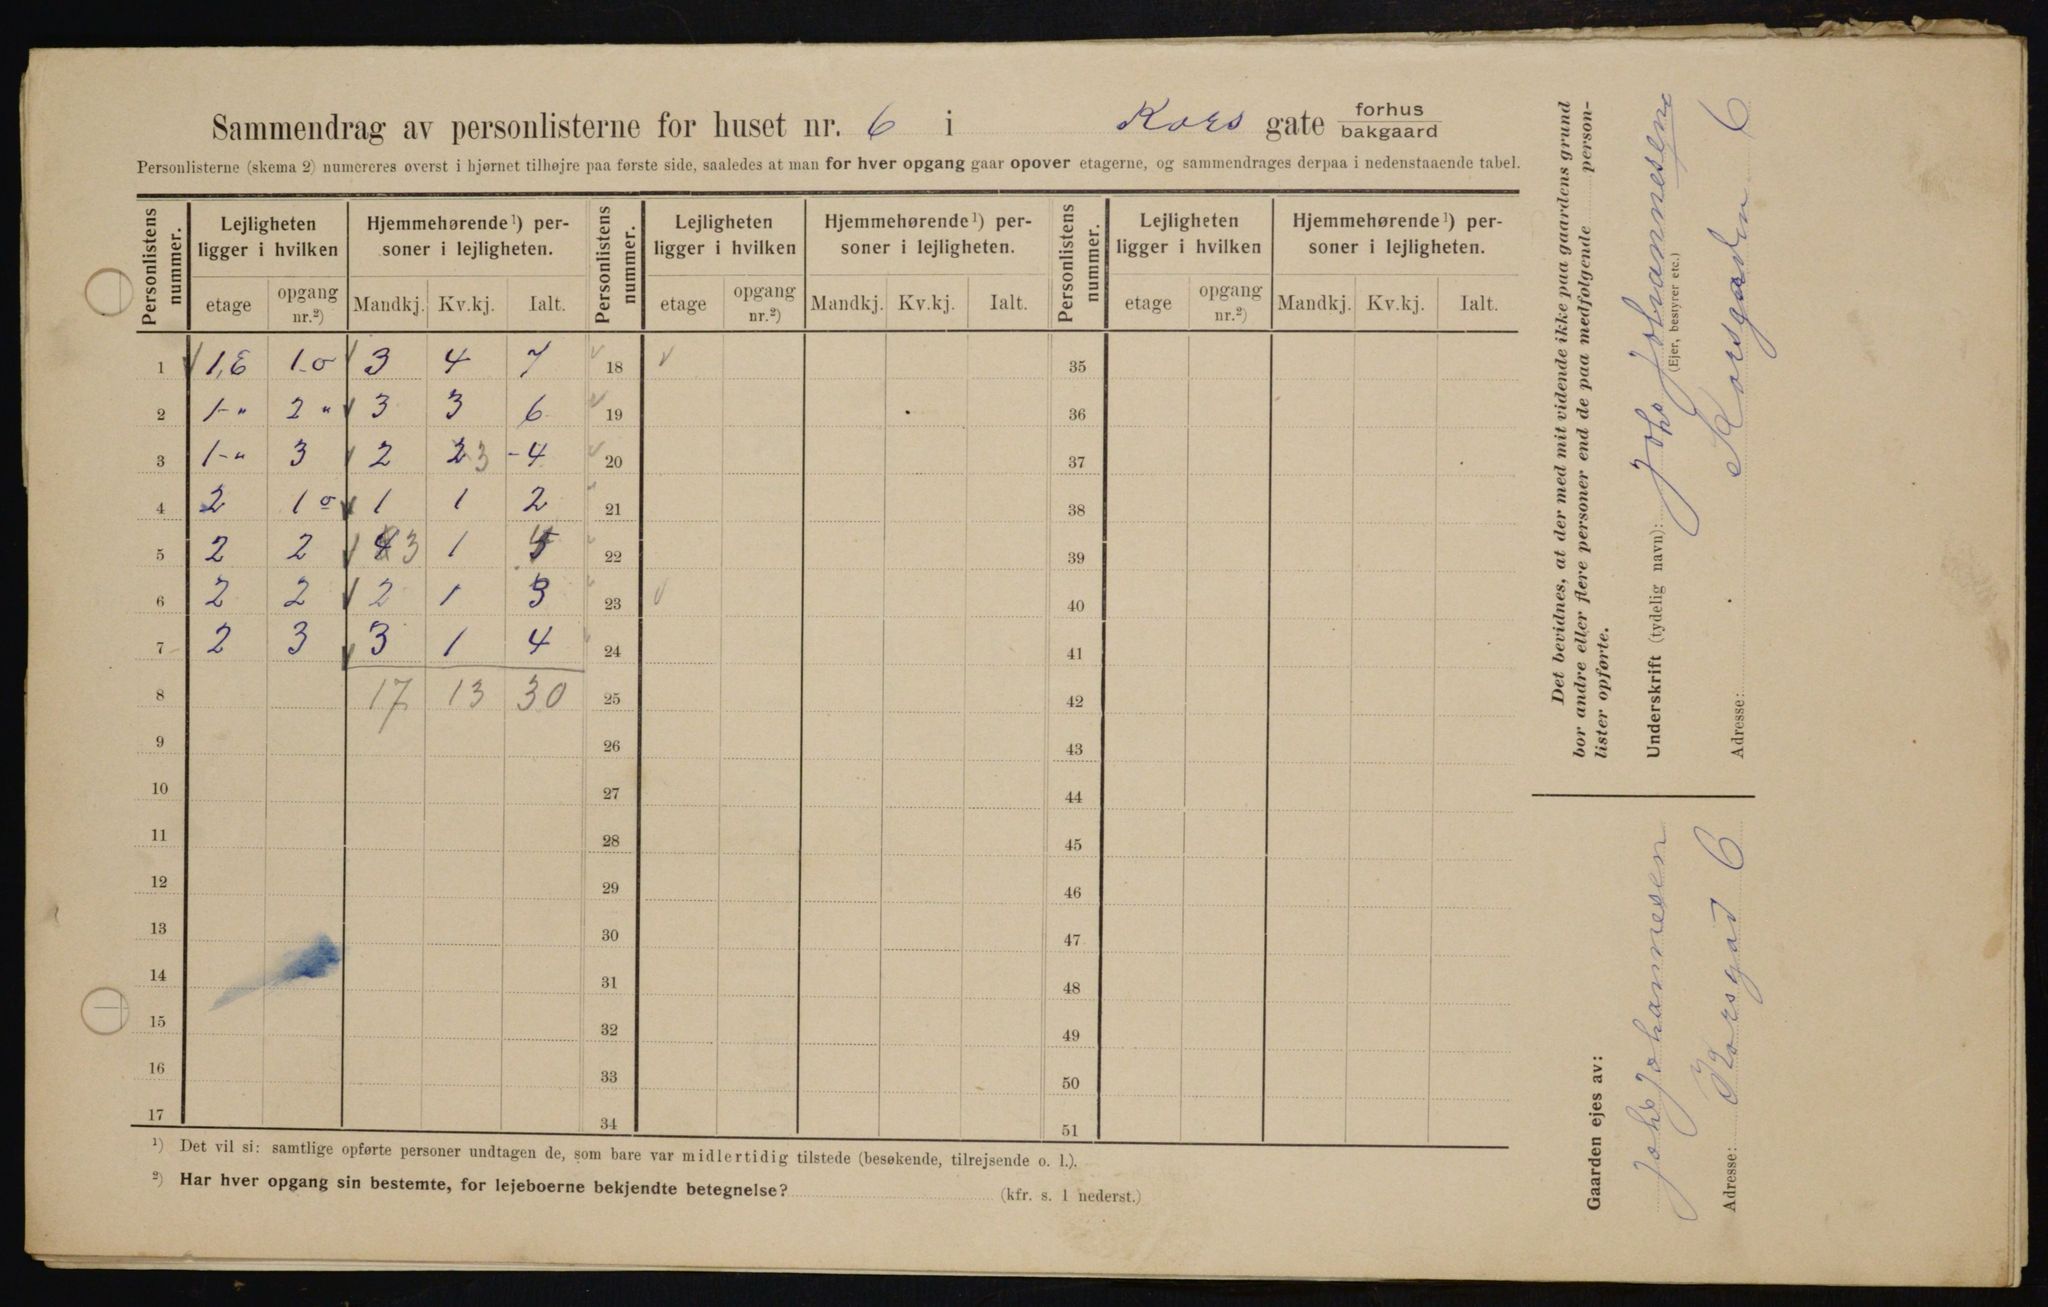 Sammendrag av personlisterne for huset nr. 6 i Kors gate forhus bakgaard
Personlisterne (skema 2) numereres øverst i hjørnet tilhøjre paa første side, saaledes at man for hver opgang gaar opover etagerne, og sammendrages derpaa i nedenstaaende tabel.
Personlistens nummer. Lejligheten ligger i hvilken Hjemmehørende¹) personer i lejligheten. Personlistens nummer. Lejligheten ligger i hvilken Hjemmehørende¹) personer i lejligheten. Personlistens nummer. Lejligheten ligger i hvilken Hjemmehørende¹) personer i lejligheten.
etage opgang nr.²) Mandkj. Kv.kj. Ialt. etage opgang nr.²) Mandkj. Kv.kj. Ialt. etage opgang nr.²) Mandkj. Kv.kj. Ialt.
1 1,E 1-o 3 4 7 18 35
2 1-" 2 " 3 3 6 19 36
3 1-" 3 2 2 3 -4 20 37
4 2 1 o 1 1 2 21 38
5 2 2 4 3 1 22 39
6 2 2 2 1 3 23 40
7 2 3 3 1 4 24 41
8 17 13 30 25 42
9 26 43
10 27 44
11 28 45
12 29 46
13 30 47
14 31 48
15 32 49
16 33 50
17 34 51
¹) Det vil si: samtlige opførte personer undtagen de, som bare var midlertidig tilstede (besøkende, tilrejsende o. l.).
²) Har hver opgang sin bestemte, for lejeboerne bekjendte betegnelse? (kfr. s. 1 nederst.)
Det bevidnes, at der med mit vidende ikke paa gaardens grund
bor andre eller flere personer end de paa medfølgende person-
lister opførte.
Underskrift (tydelig navn): Johs Johannesen
(Ejer, bestyrer etc.)
Adresse: Korsgaden 6
Gaarden ejes av:
Johs Johannesen
Adresse: Korsgad 6